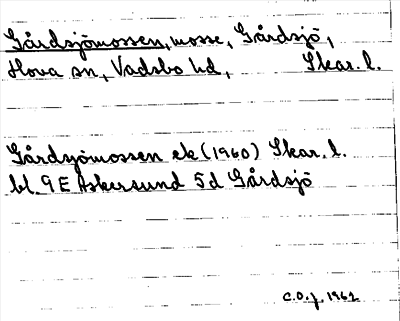 Gårdsjömossen, mosse, Gårdsjö,
Hova sn, Vadsbo hd, Skar. l.
Gårdsjömossen ek (1960) Skar. l.
bl. 9 E Askersund 5d Gårdsjö
C.O.J. 1962